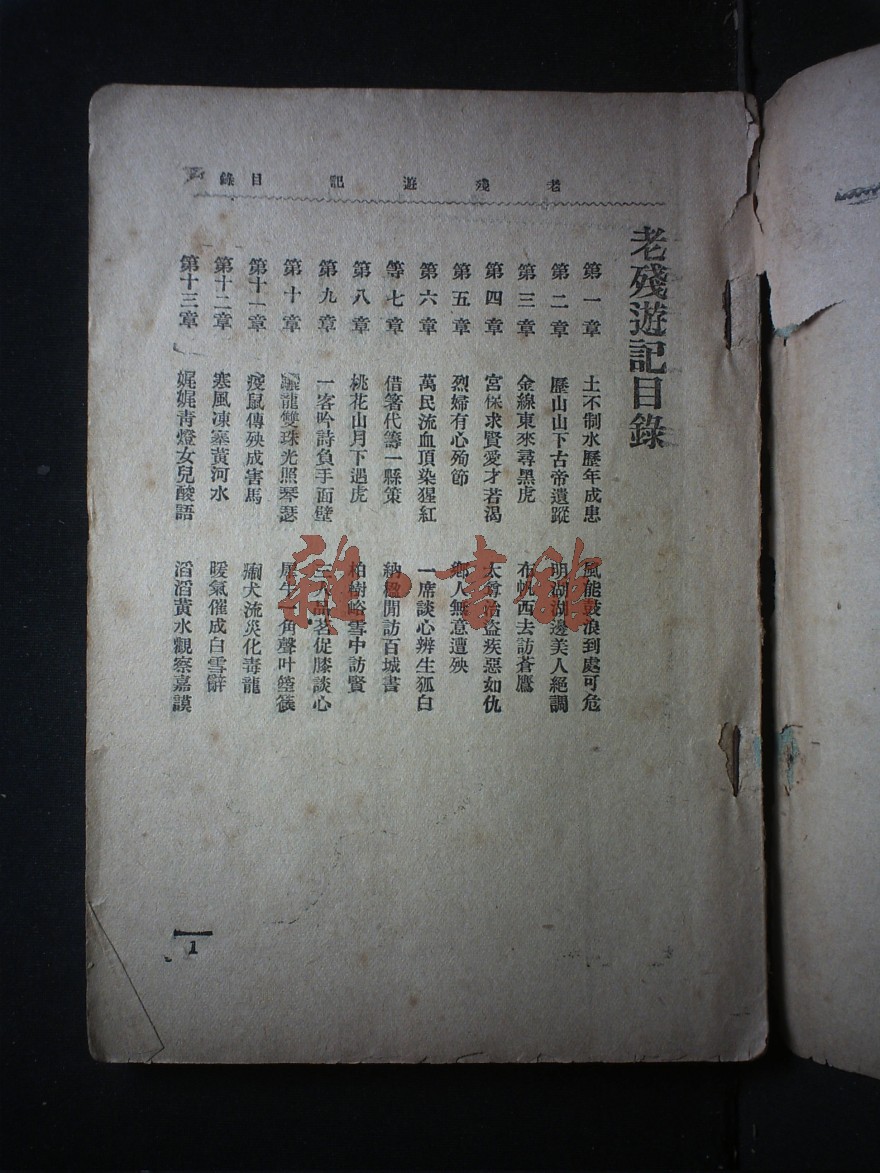 老殘遊記 目錄
老殘遊記目錄
第一章 土不制水歷年成患 風能鼓浪到處可危
第二章 歷山山下古帝遺蹤 明湖湖邊美人絕調
第三章 金線東來尋黑虎 布帆西去訪蒼鷹
第四章 宮保求賢愛才若渴 太尊治盜疾惡如仇
第五章 烈婦有心殉節 鄉人無意遭殃
第六章 萬民流血頂染猩紅 一席談心辨生狐白
等七章 借箸代籌一縣策 納楹閒訪百城書
第八章 桃花山月下遇虎 柏樹峪雪中訪賢
第九章 一客吟詩負手面壁 三人品茗促膝談心
第十章 驪龍雙珠光照琴瑟 犀牛一角聲叶箜篌
第十一章 疫鼠傳殃成害馬 瘈犬流災化毒龍
第十二章 寒風凍塞黃河水 暖氣催成白雪辭
第十三章 娓娓青燈女兒酸語 滔滔黃水觀察嘉謨
1
雜·書館